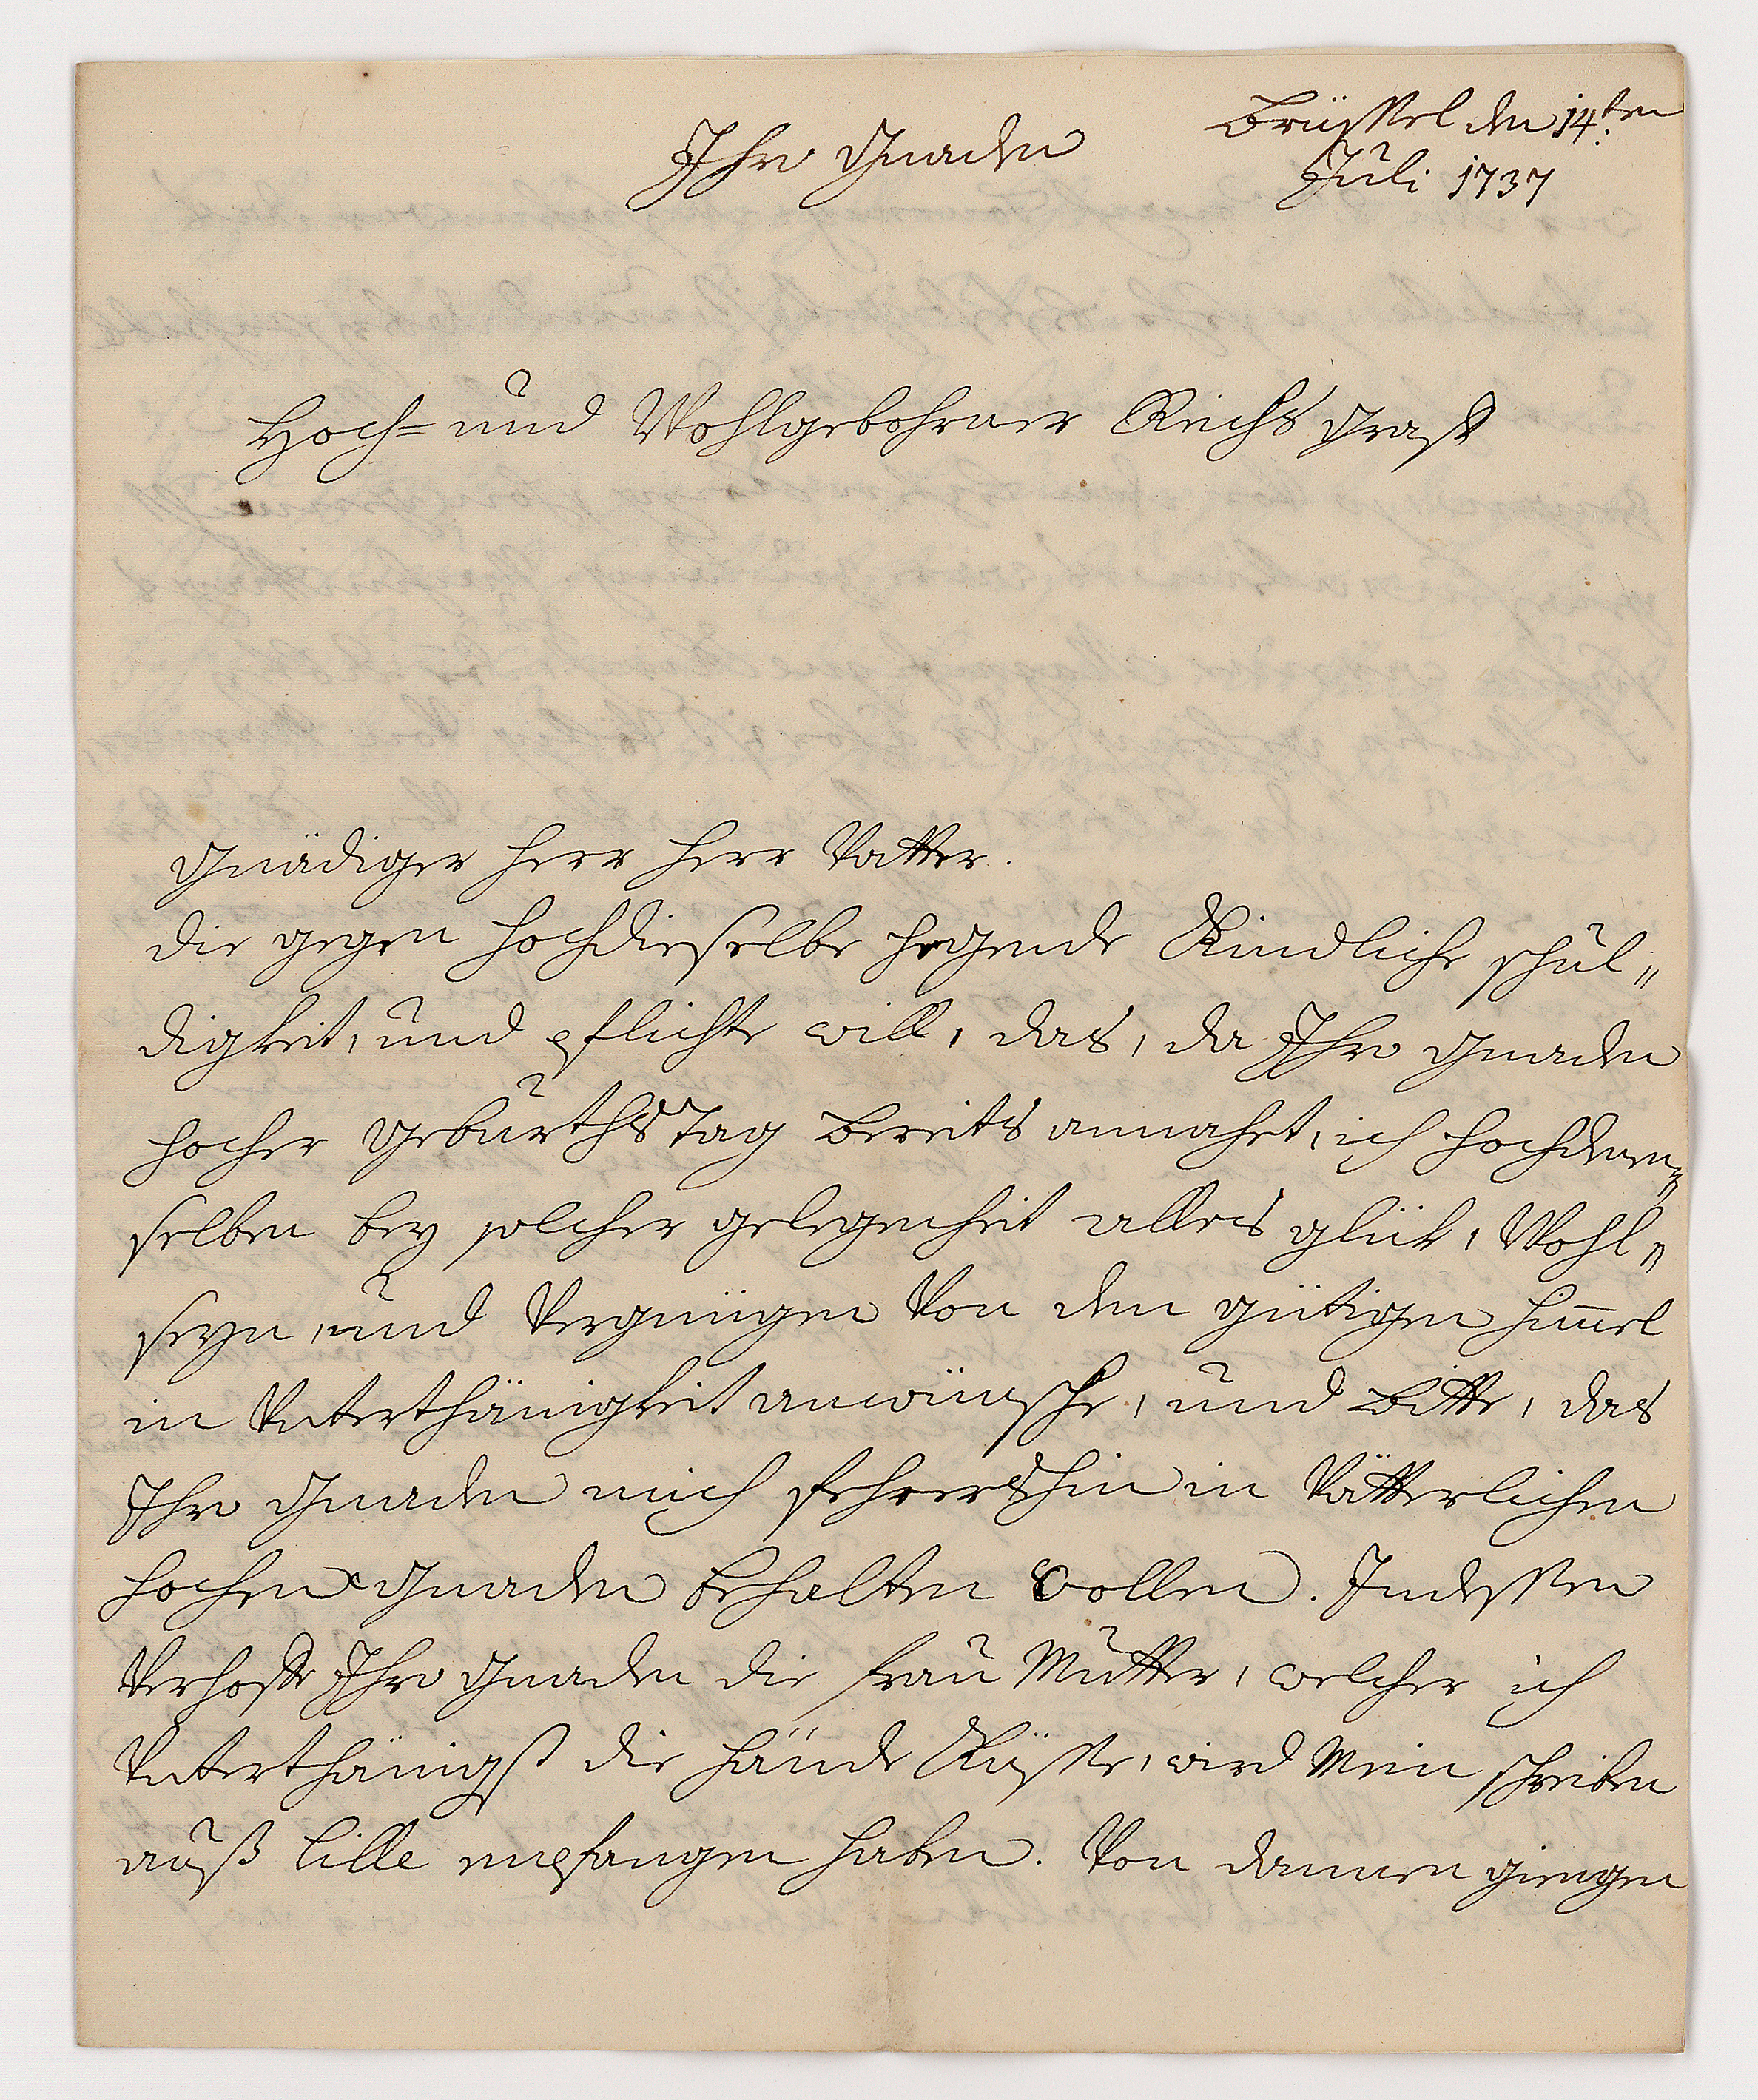 Brüssel den 14.ten
Juli 1737
Ihro Gnaden
Hoch= und Wohlgebohrner Reichs Graff
Gnädiger Herr Herr Vatter.
die gegen hochdieselbe hegende Kindliche schul„
digkeit, und pflichte will, das, da Ihro Gnaden
hocher geburthstag bereits annahet, ich hochden„
selben bey solcher gelegenheit alles glük, Wohl„
seyn, und Vergnügen Von dem gütigen him̅el
in Unterthänigkeit anwünsche, und bitte, das
Ihro Gnaden mich fehrershin in Vätterlichen
hochen Gnaden behalten wollen. Indessen
Verhoffe Ihro Gnaden die frau Mutter, welcher ich
Unterthänigst die hände Küsse, wird Mein schreiben
auß lille empfangen haben. Von dannen giengen